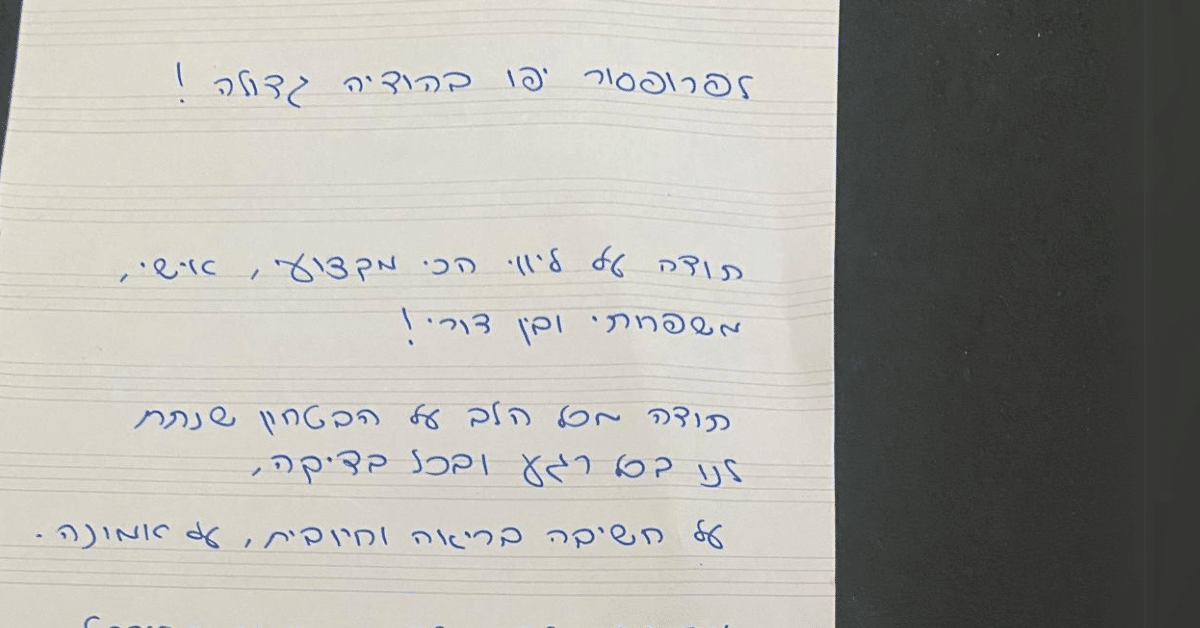 לפרופסור יפו בהודיה גדולה!
תודה על ליווי הכי מקצועי, אישי,
משפחתי ובין דורי!
תודה מכל הלב על הבטחון שנתת
לנו בכל רגע ובכל בדיקה,
על חשיבה בריאה וחיובית, על אמונה.